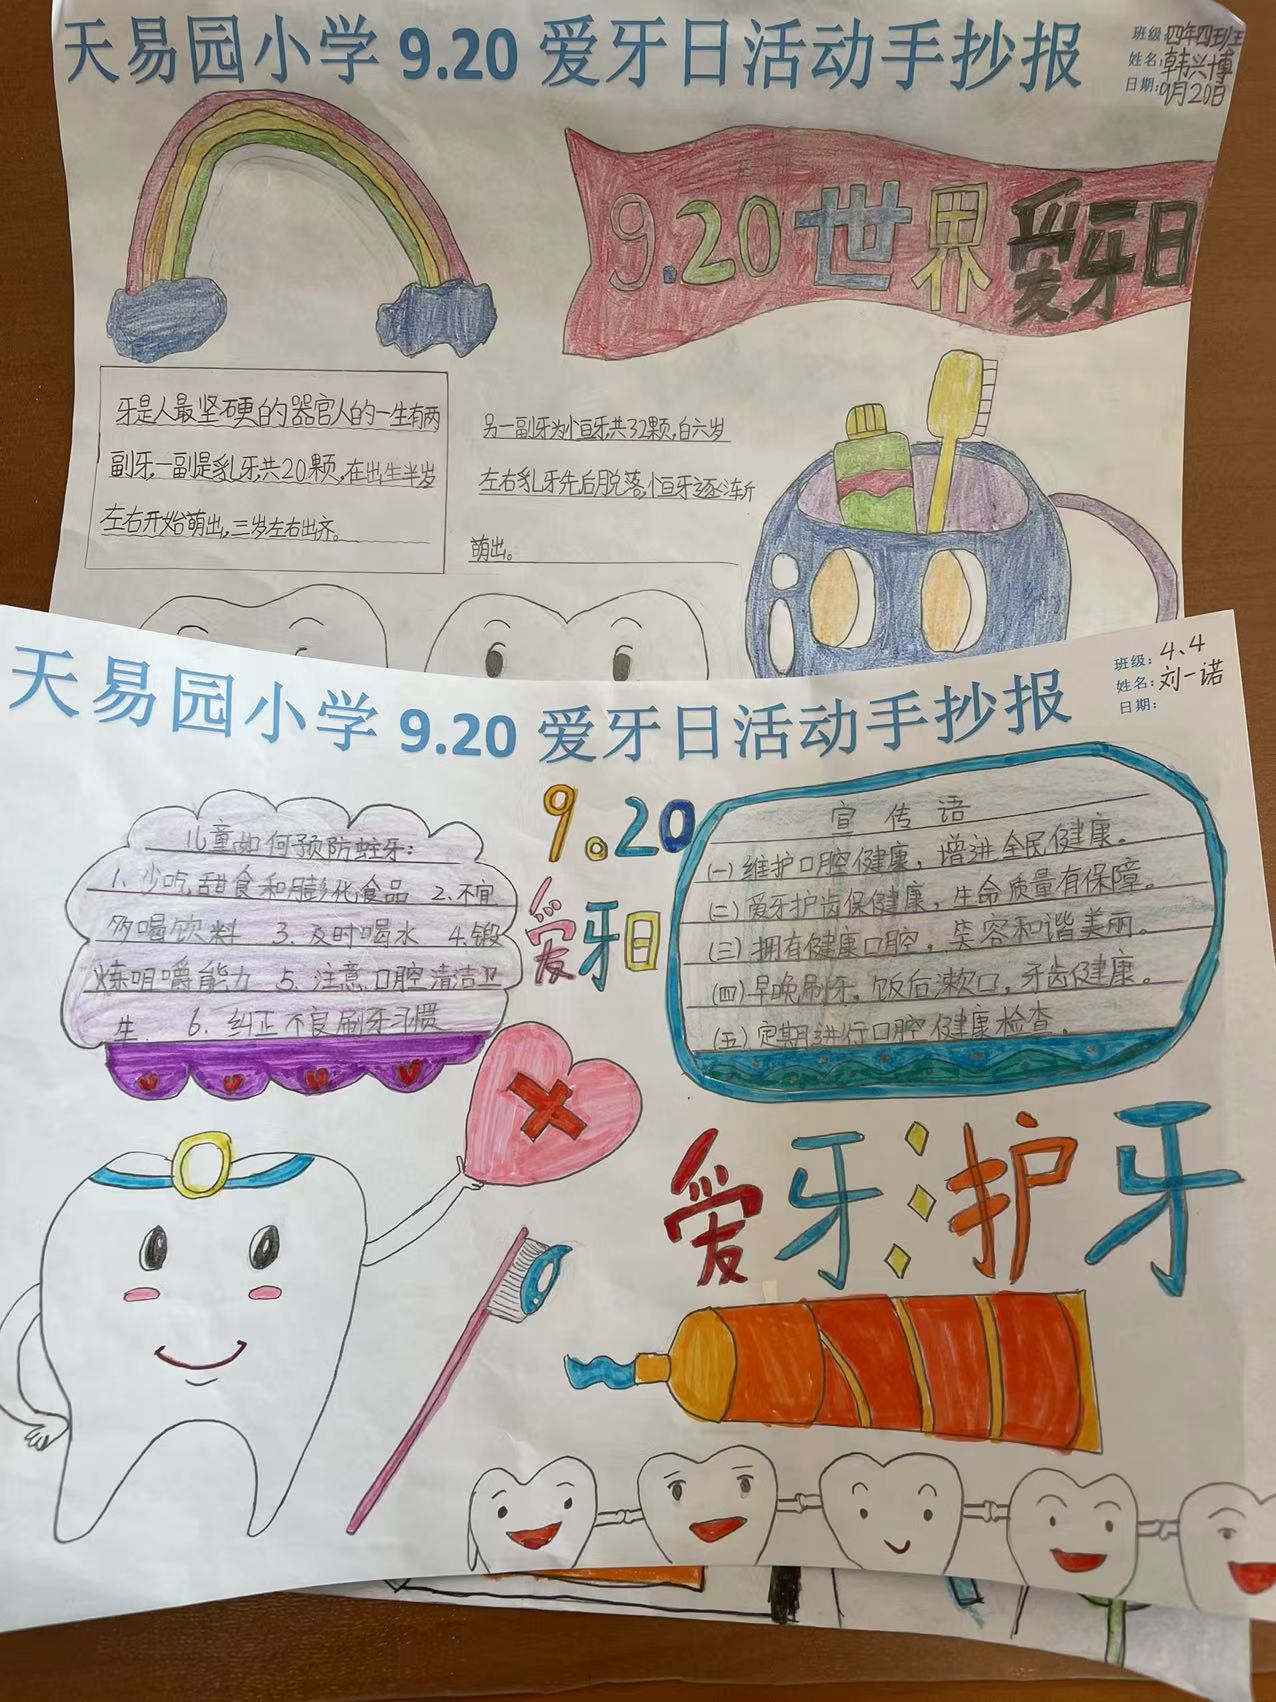 天易园小学 9.20 爱牙日活动手抄报
班级:四年四班
姓名:韩兴博
日期:9月20日
9.20世界爱牙日
牙是人最坚硬的器官人的一生有两
副牙,一副是乳牙,共20颗,在出生半岁
左右开始萌出,三岁左右出齐。
另一副牙为恒牙,共32颗,自六岁
左右乳牙先后脱落,恒牙逐渐
萌出。
天易园小学 9.20 爱牙日活动手抄报
班级:4、4
姓名:刘一诺
日期:
儿童如何预防蛀牙:
1、少吃甜食和膨化食品 2、不宜
多喝饮料 3、及时喝水 4、锻
炼咀嚼能力 5、注意口腔清洁卫
生 6、纠正不良刷牙习惯
9.20
爱牙日
宣传语
(一)维护口腔健康,增进全民健康。
(二)爱牙护齿保健康,生命质量有保障。
(三)拥有健康口腔,笑容和谐美丽。
(四)早晚刷牙,饭后漱口,牙齿健康。
(五)定期进行口腔健康检查。
爱牙护牙